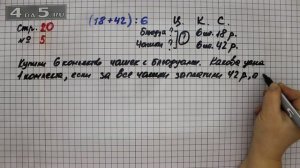 4 pa 5. ru
Стр. 20
(18+42) : 6 Ц. К. С.
№ 5
Блюдца ? 6 шт. 18 р.
Чашки ? 6 шт. 42 р.
?
Купили 6 чашек с блюдцами. Какова цена
1 комплекта, если за все чашки заплатили 42 р., а